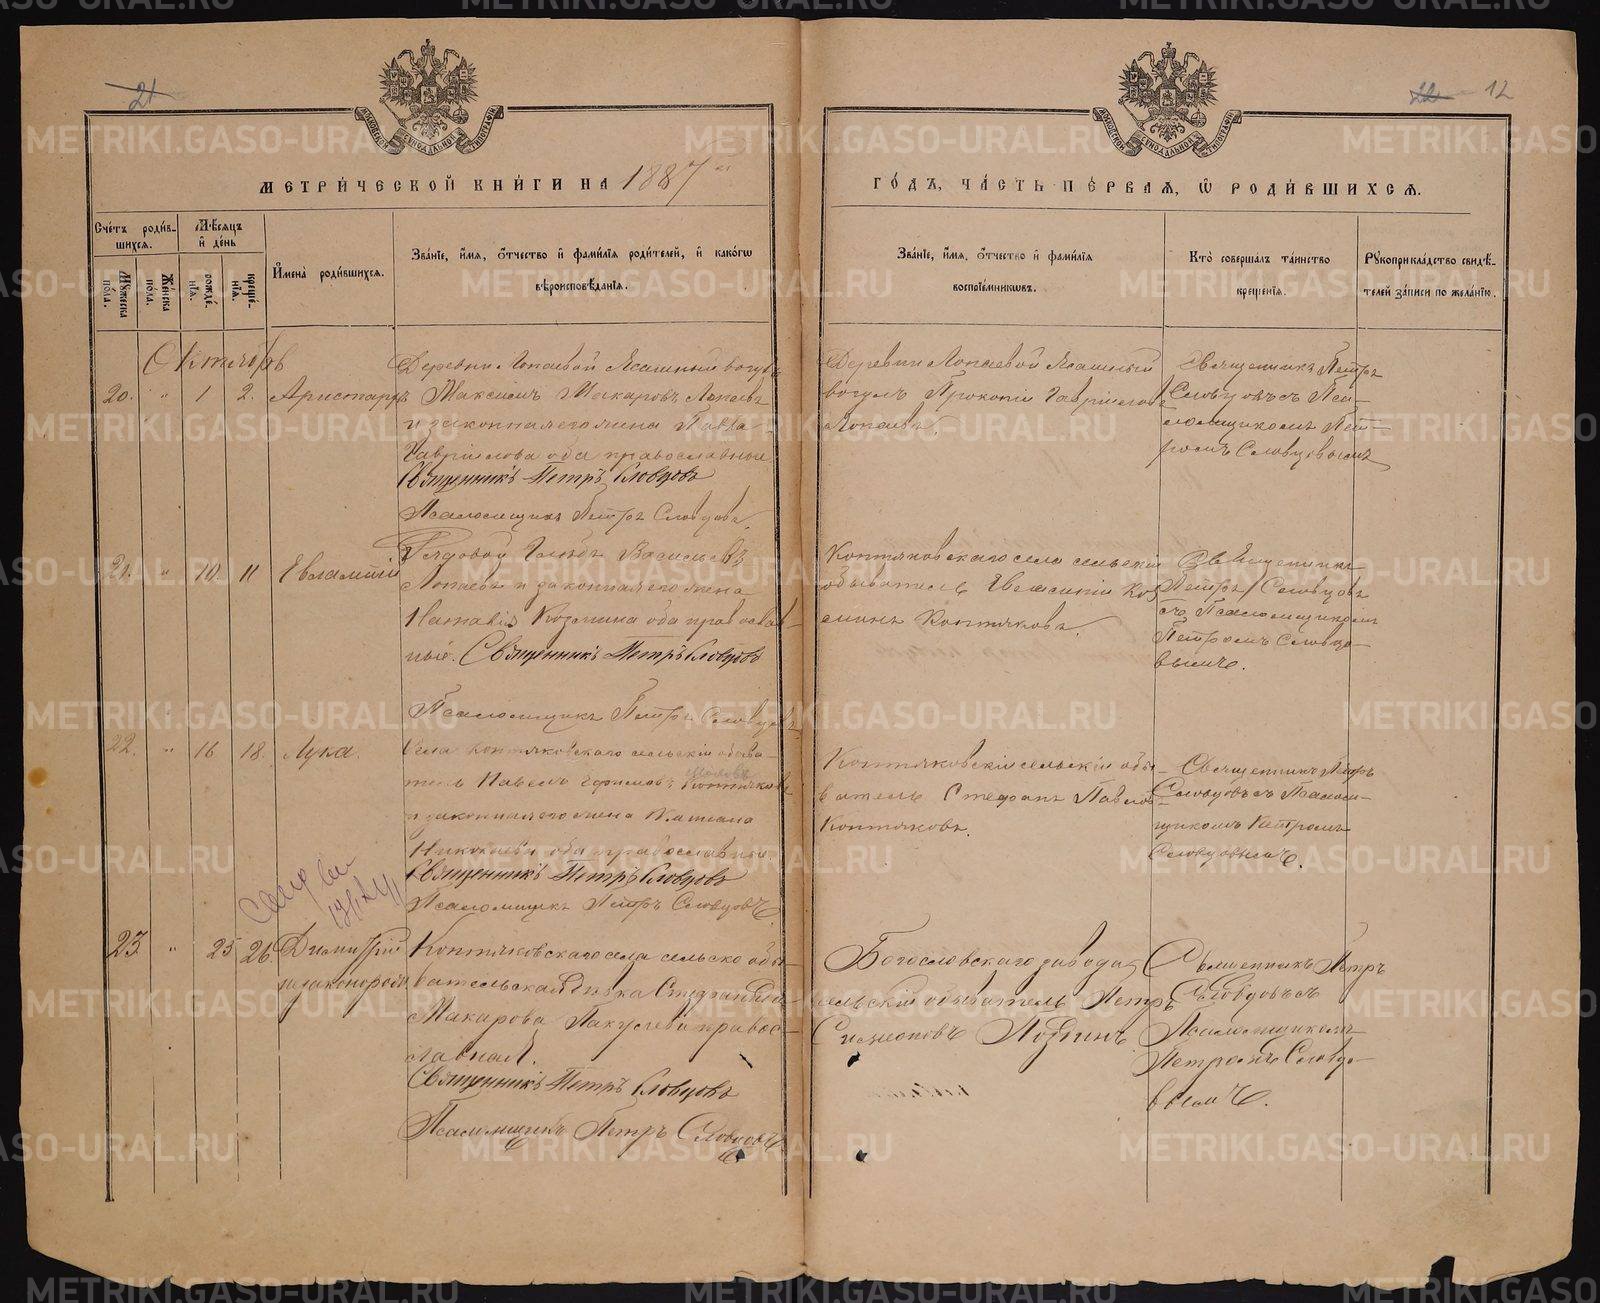 21
22 12
МОСКОВСКОЙ СѴНОДАЛЬНОЙ ТИПОГРАФІИ
МОСКОВСКОЙ СѴНОДАЛЬНОЙ ТИПОГРАФІИ
МЕТРИ́ЧЕСКОЙ КНИ́ГИ НА 1887
ГО́ДЪ, ЧА́СТЬ ПЕ́РВАЯ, Ѡ҆ РОДИ́ВШИХСЯ.
Сче́тъ роди́в-
шихся.
Мѣ́сяцъ
и҆ де́нь
Мꙋ́жеска по́ла.
Же́нска по́ла.
рожде́-
нїѧ.
креще́-
нїѧ.
И҆мена̀ роди́вшихся.
Зва́нїе, и҆́мѧ, ѻ҆́тчество и҆ фамѝлїѧ роди́телей, и҆ како́гѡ
вѣроисповѣ́данїѧ.
Зва́нїе, и҆́мѧ, ѻ҆́тчество и҆ фамѝлїѧ
воспрїе́мникѡвъ.
Кто̀ соверша́лъ та́инство
креще́нїѧ.
Рꙋкоприкла́дство свидѣ́-
телей за́писи по жела́нїю.
Октябрь
20. " 1 2. Аристархъ
Деревни Лопаевой Ясашный вогулъ
Максимъ Макаровъ Лопаевъ
и законная его жена Павла
Гавриилова оба православные
Священникъ Петръ Словцовъ
Псаломщикъ Петръ Словцовъ.
Деревни Лопаевой Ясашный
вогулъ Прокопій Гавриловъ
Лопаевъ.
Священникъ Петръ
Словцовъ съ Пса-
ломщикомъ Пет-
ромъ Словцовымъ
21. " 10. 11 Евлампій
Рядовой Глѣбъ Васильевъ
Лопаевъ и законная его жена
Наталія Козмина оба православ-
ные. Священникъ Петръ Словцовъ
Псаломщикъ Петръ Словцовъ
Коптяковскаго села сельскій
обыватель Коз
минъ Коптяковъ.
Священникъ
Петръ Словцовъ
съ Псаломщикомъ
Петромъ Словцо-
вымъ.
22. " 16 18. Лука.
Села Коптяковскаго сельскій обыва-
тель Павелъ Ефимовъ Коптяковъ
и законная его жена
Николаева оба православные.
Священникъ Петръ Словцовъ
Псаломщикъ Петръ Словцовъ
Коптяковскій сельскій обы-
ватель Стефанъ Павлов-
Коптяковъ.
Священникъ Петръ
Словцовъ съ Псалом-
щикомъ Петромъ
Словцовымъ.
23 " 25 26. Димитрій
незаконорож
Коптяковскаго села сельско обы-
вательская дѣвка
Макарова Пакулева правос-
лавная.
Священникъ Петръ Словцовъ
Псаломщикъ Петръ Словцовъ
Богословскаго завода
сельскій обыватель Петръ
Симеоновъ
Священникъ Петръ
Словцовъ съ
Псаломщикомъ
Петромъ Словцо-
вымъ.
METRIKI.GASO-URAL.RU